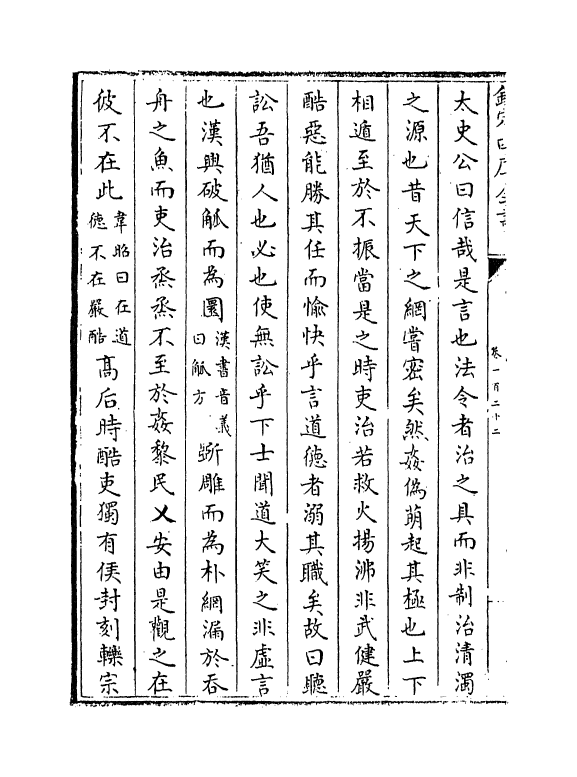 欽定四庫全書
卷一百二十二
太史公曰信哉是言也法令者治之具而非制治清濁
之源也昔天下之網嘗密矣然姦偽萌起其極也上下
相遁至於不振當是之時吏治若救火揚沸非武健嚴
酷惡能勝其任而愉快乎言道德者溺其職矣故曰聽
訟吾猶人也必也使無訟乎下士聞道大笑之非虛言
也漢興破觚而為圜漢書音義曰觚方斲雕而為朴網漏於吞
舟之魚而吏治烝烝不至於姦黎民乂安由是觀之在
彼不在此韋昭曰在道德不在嚴酷高后時酷吏獨有侯封刻轢宗